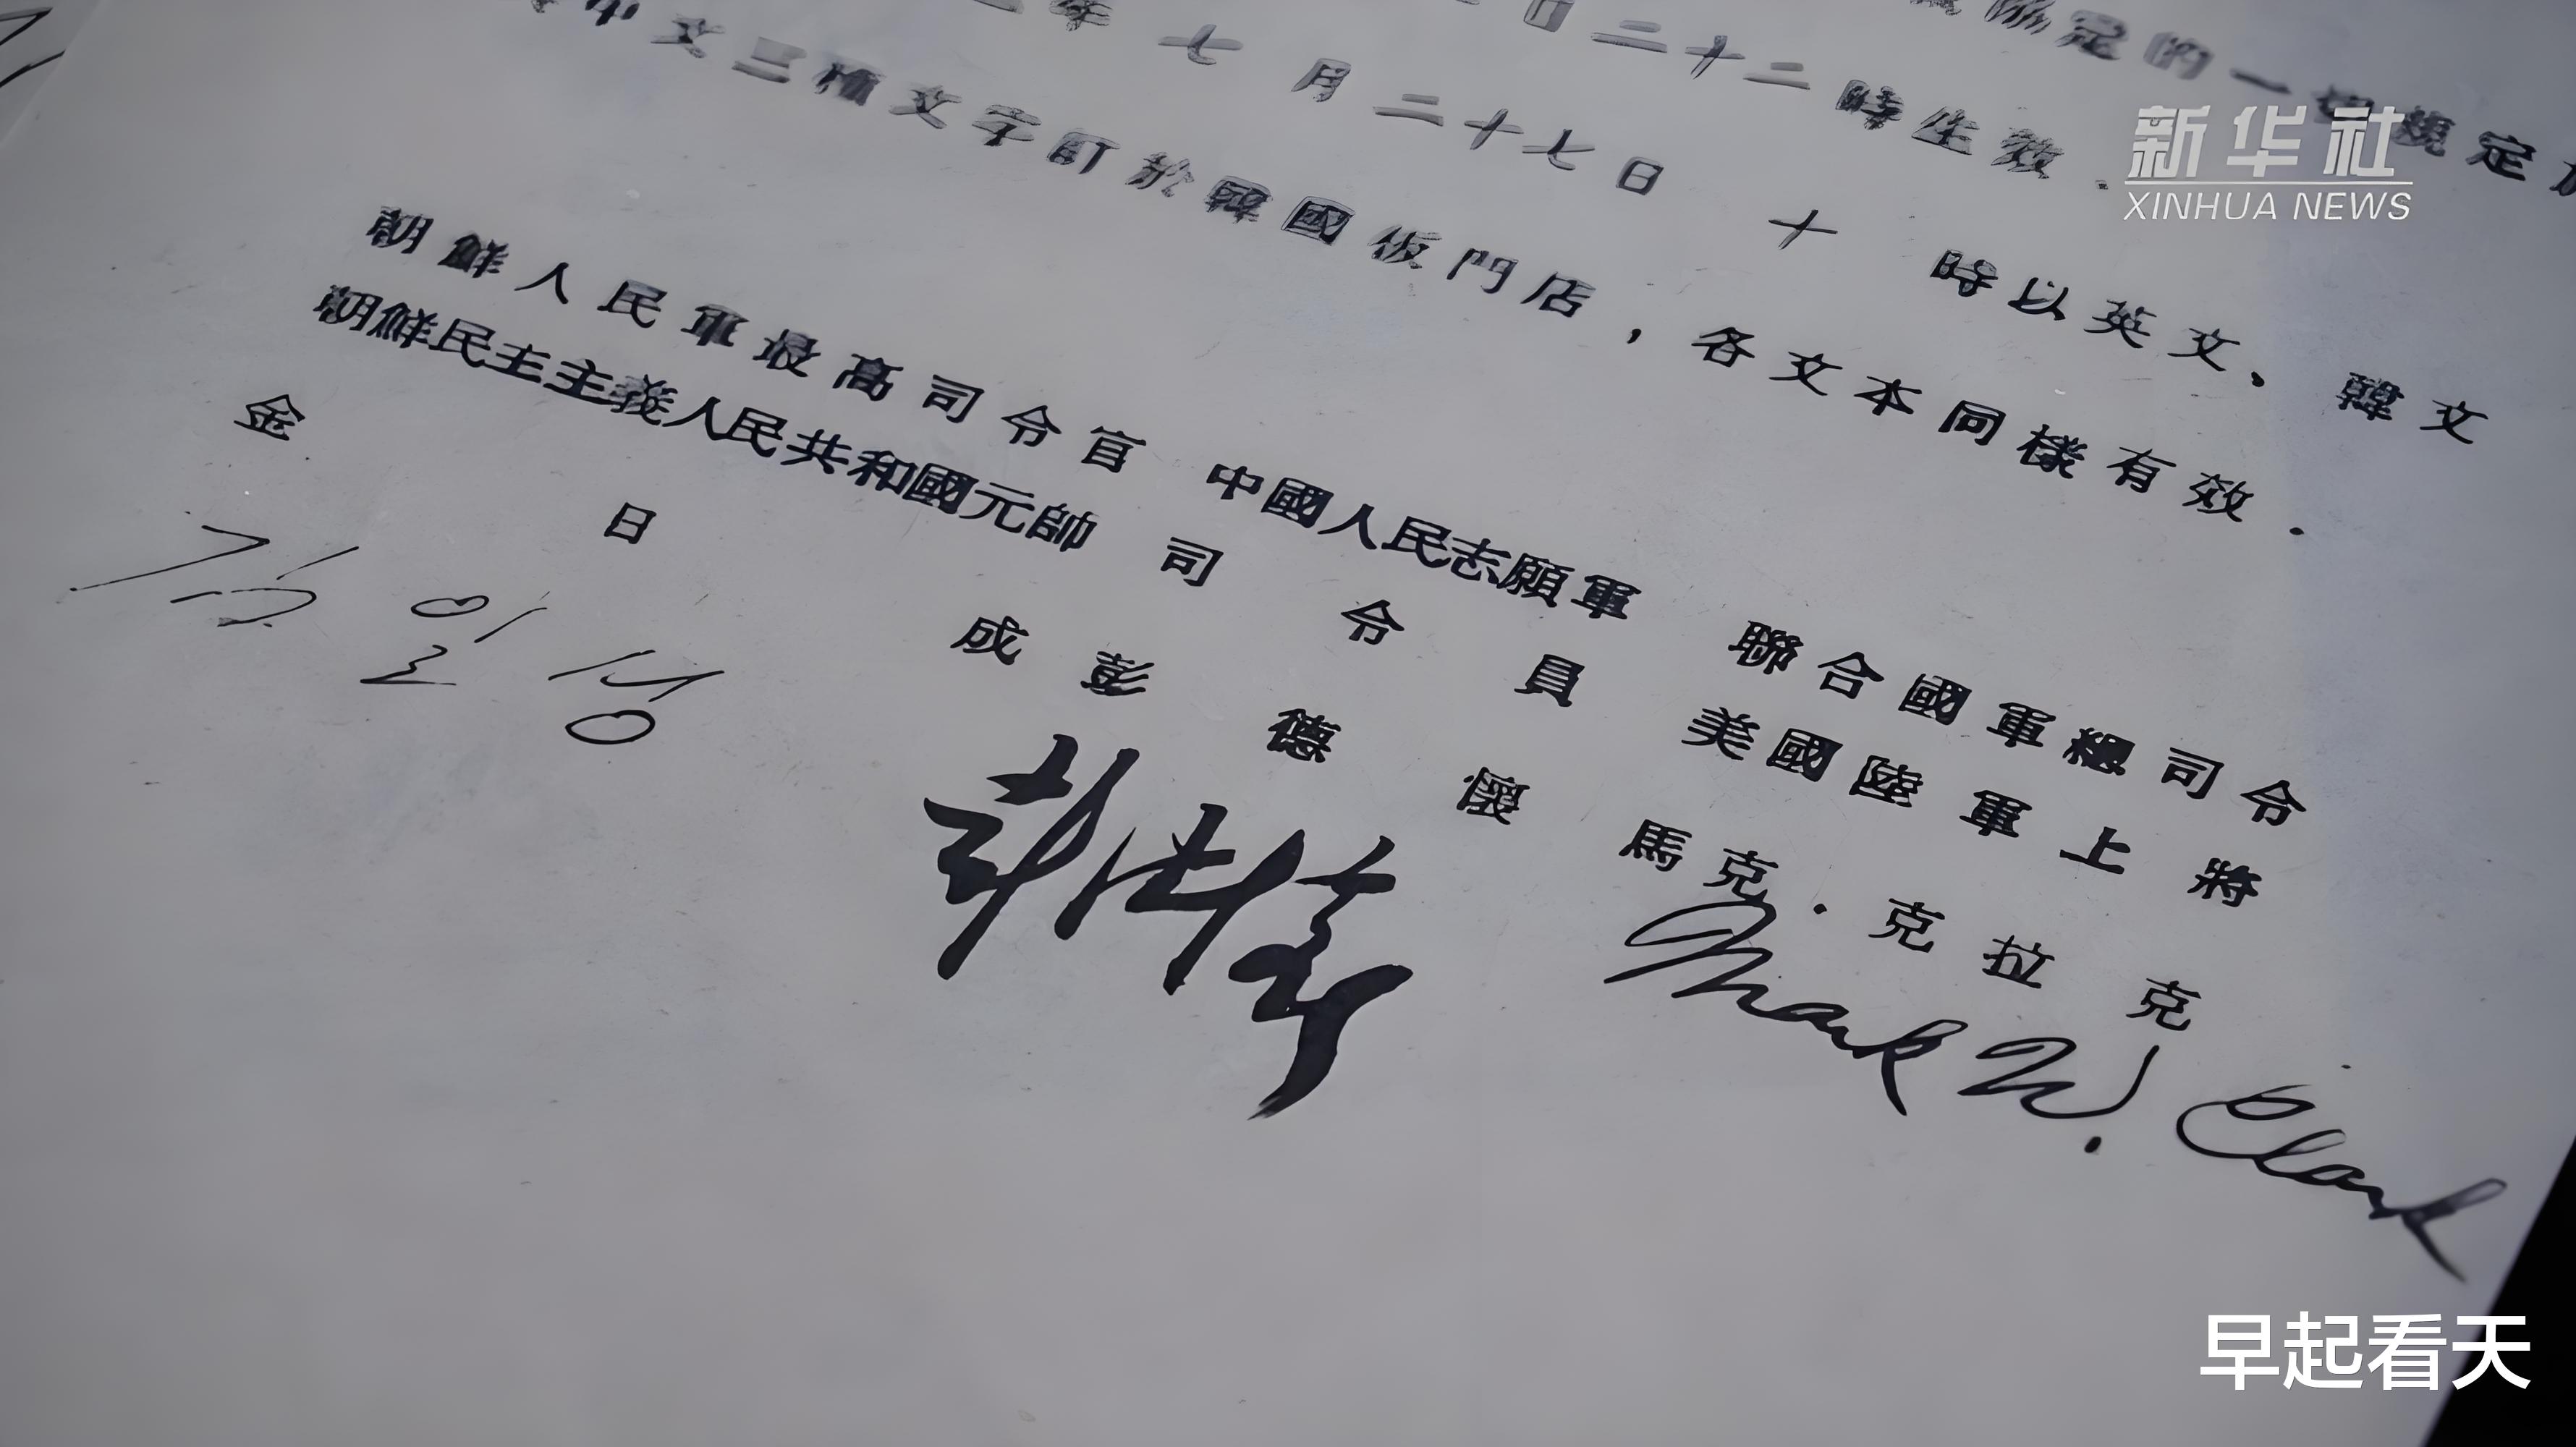 定的一切規定
日二十二時生效.
年七月二十七日十時以英文、韓文
中文三種文字訂於韓國板門店，各文本同樣有效.
朝鮮人民軍最高司令官 中國人民志願軍 聯合國軍總司令
朝鮮民主主義人民共和國元帥 司令員 美國陸軍上將
金日成 彭德懷 馬克·克拉克
김일성 彭德懷 Mark W. Clark
新华社
XINHUA NEWS
早起看天